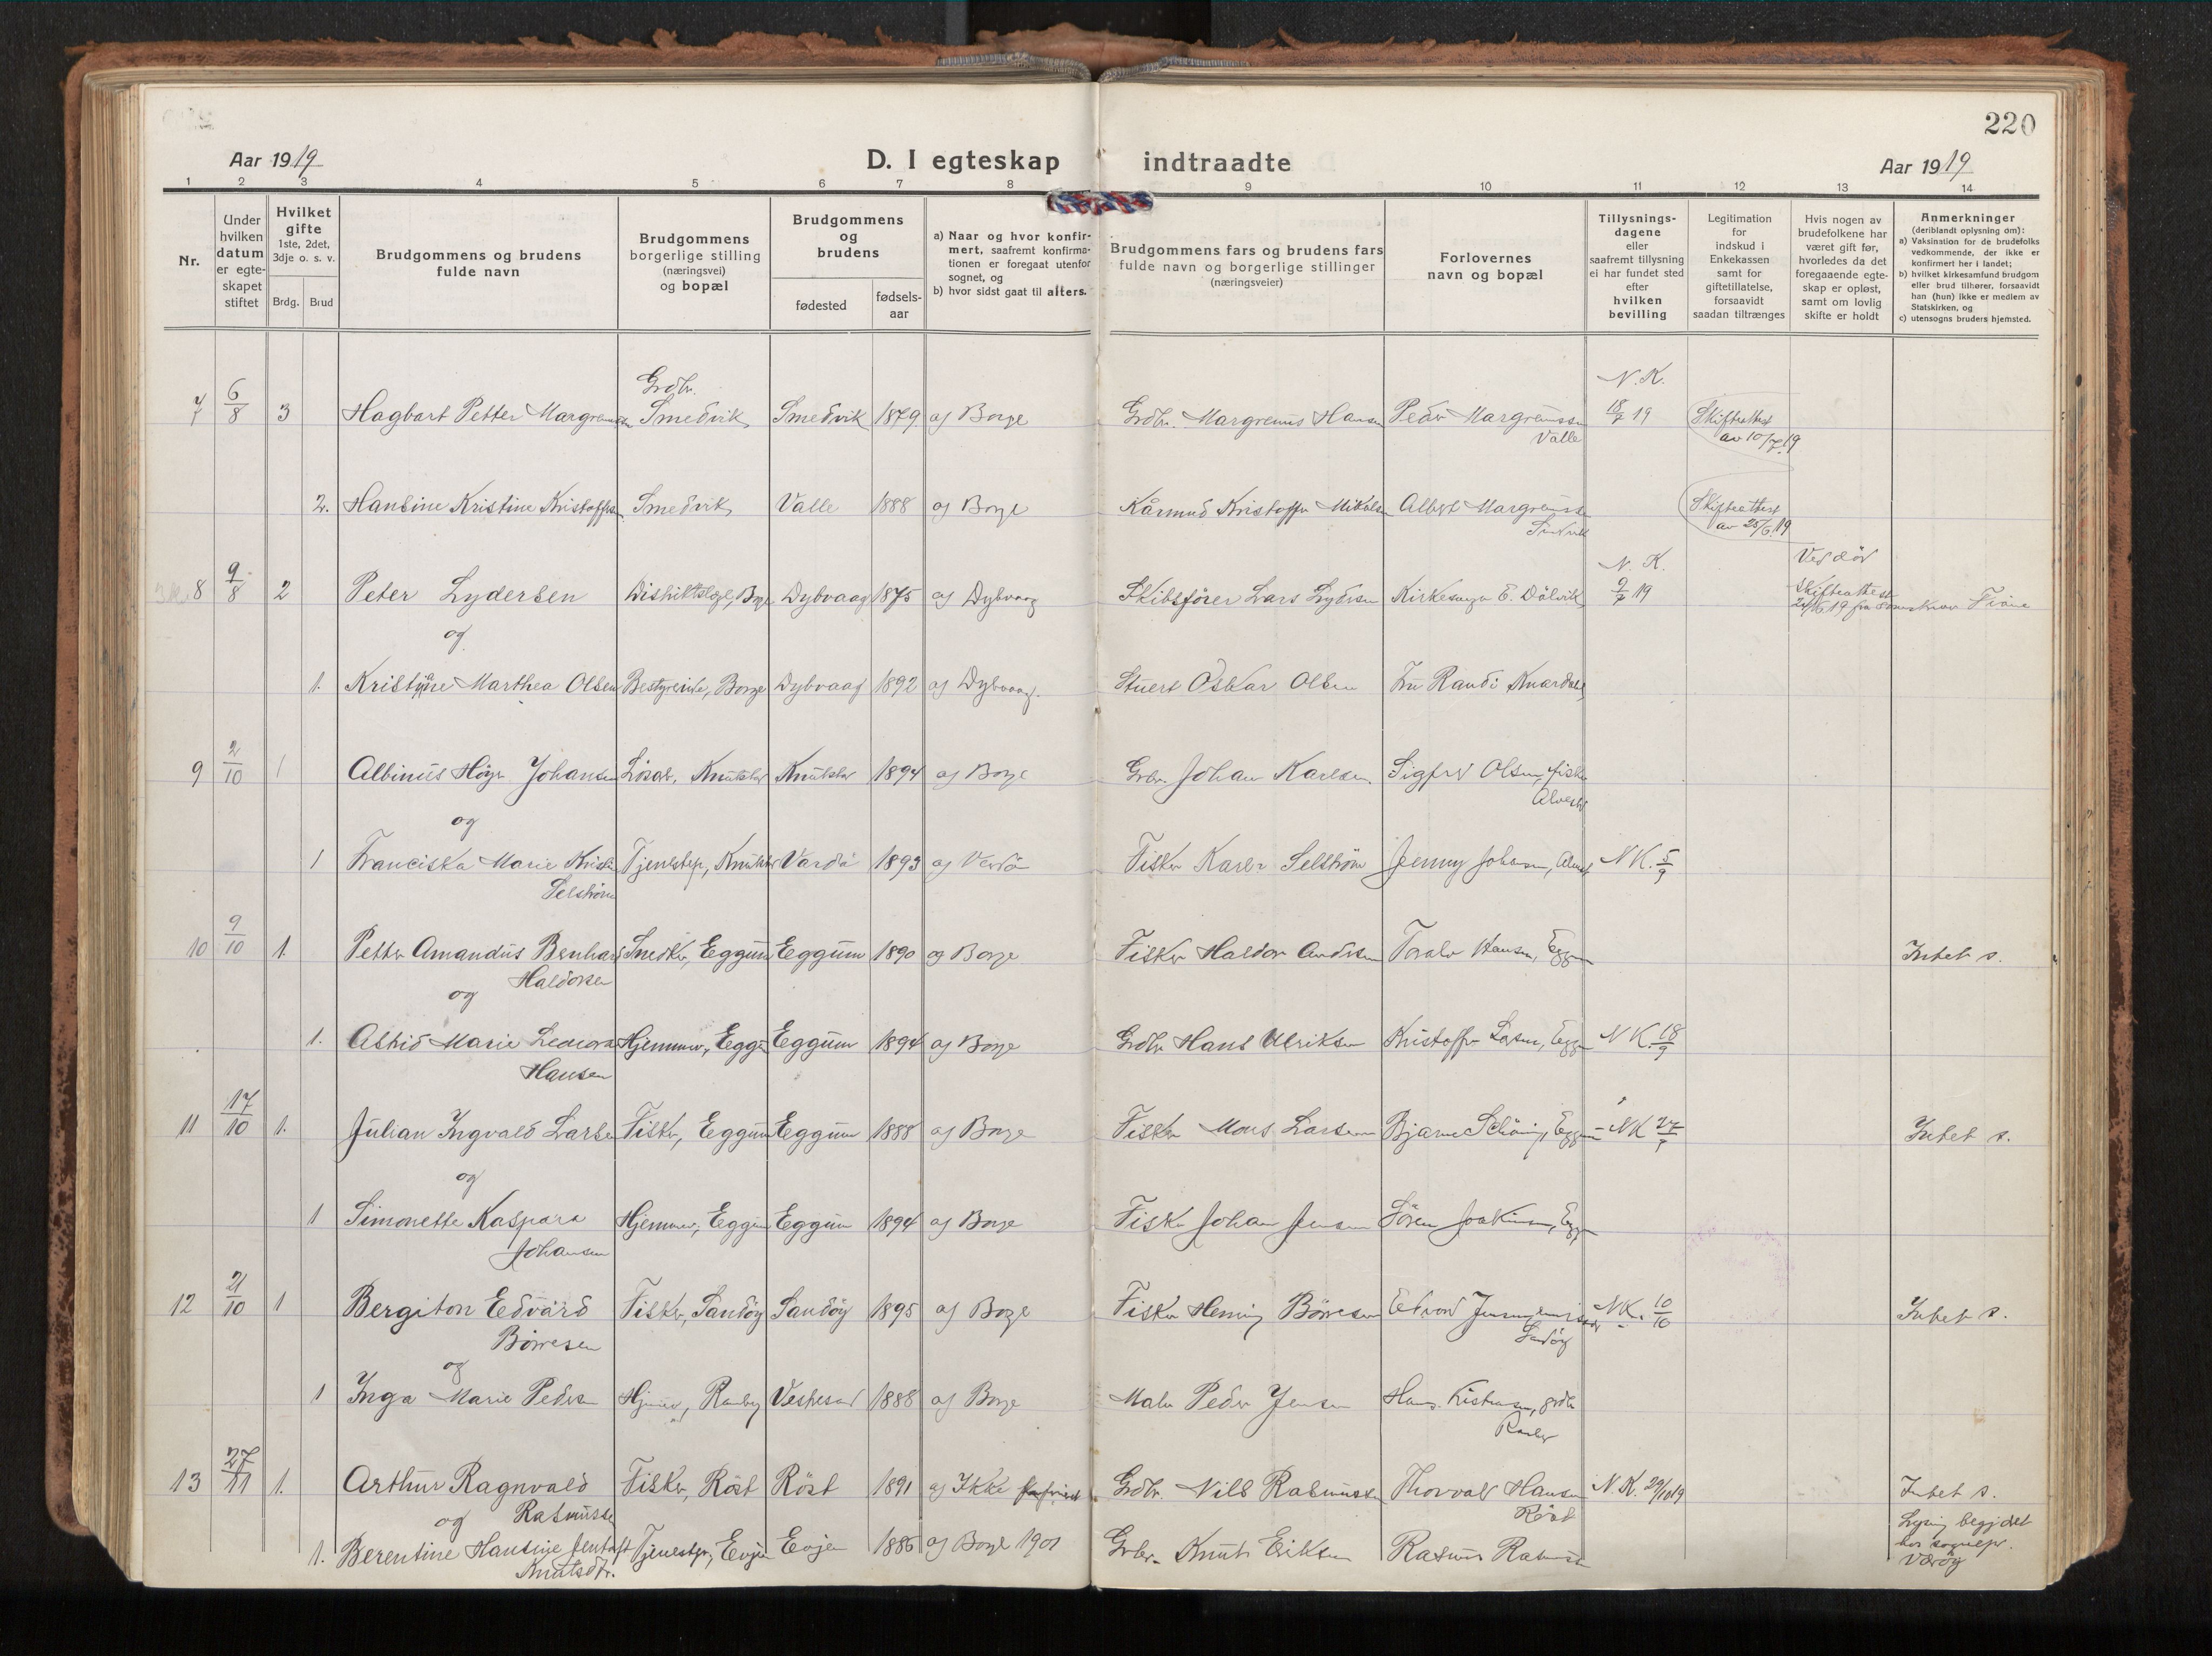 220
Aar 1919
D. I egteskap indtraadte
Aar 1919
1 2 3 4 5 6 7 8 9 10 11 12 13 14
Nr.
Under hvilken datum er egteskapet stiftet
Hvilket gifte 1ste, 2det, 3dje o. s. v.
Brdg. Brud
Brudgommens og brudens fulde navn
Brudgommens borgerlige stilling (næringsvei) og bopæl
Brudgommens og brudens
fødested
fødsels-aar
a) Naar og hvor konfirmert, saafremt konfirmationen er foregaat utenfor sognet, og
b) hvor sidst gaat til alters.
Brudgommens fars og brudens fars fulde navn og borgerlige stillinger (næringsveier)
Forlovernes navn og bopæl
Tillysningsdagene eller saafremt tillysning ei har fundet sted efter hvilken bevilling
Legitimation for indskud i Enkekassen samt for giftetillatelse, forsaavidt saadan tiltrænges
Hvis nogen av brudefolkene har været gift før, hvorledes da det foregaaende egteskap er opløst, samt om lovlig skifte er holdt
Anmerkninger (deriblandt oplysning om):
a) Vaksination for de brudefolks vedkommende, der ikke er konfirmert her i landet;
b) hvilket kirkesamfund brudgom eller brud tilhører, forsaavidt han (hun) ikke er medlem av Statskirken, og
c) utensogns bruders hjemsted.
7 6/8 3 Hagbart Petter Margreinussen Grdbr. Smedvik Smedvik 1879 og Borge Grdbr. Margreinus Hansen Peder Margreinussen Valle N. K. 18/7 19 Skifteattest av 10/7 19
2. Hansine Kristine Kristoffersen Smedvik Valle 1888 og Borge Kårmud Kristoffer Mikalsen Albert Margreinussen Smedvik Skifteattest av 25/6 19
8 9/8 2 Peter Lydersen Distriktslæge, Borge Dybvaag 1875 og Dybvaag Skibsfører Lars Lydersen Kirkesanger E. Dålvik N. K. 9/7 19 Ved død Skifteattest
og
1. Kristine Marthea Olsen Bestyrerinde, Borge Dybvaag 1892 og Dybvaag. Stuert Oskar Olsen Fru Randi Knardahl
9 2/10 1 Albinus Høyer Johansen Løsarb., Knutstad Knutstad 1894 og Borge Grbr. Johan Karlsen. Sigfred Olsen, fisker Alvestad
og
1 Franciska Marie Kristine Selstrøm Tjenestep., Knutstad Vardø 1893 og Vardø Fisker Karl Selstrøm Jenny Johansen, Alvest N K. 5/9
10 9/10 1. Petter Amandus Benhard Haldorsen Snedker, Eggum Eggum 1890 og Borge Fisker Haldor Andersen Toralv Hansen, Eggum Intet s.
og
1. Astrid Marie Leonora Hansen Hjemmev., Eggum Eggum 1894 og Borge Grdbr Hans Ulriksen Kristoffer Larsen, Eggum N K. 18/9
11 17/10 1. Julian Ingvald Larsen Fisker, Eggum Eggum 1888 og Borge Fisker Mons Larsen Bjarne Schöning, Eggum NK 27/9 Intet s.
og
1 Simonette Kaspara Johansen Hjemmev, Eggum Eggum 1894 og Borge Fisker Johan Jensen Søren Joakimsen, Egg
12 21/10 1 Bergiton Edvard Börresen Fisker, Sandöy Sandöy 1895 og Borge Fisker Heming Börresen Edvard Jensen Sandöy NK. 10/10 Intet s.
og
1 Inga Marie Pedersen Hjemmev, Ramberg Vestresand 1888 og Borge Maler Peder Jensen Hans Kristiansen, grdbr
13 27/11 1. Arthur Ragnvald Rasmussen Fisker, Röst Röst 1891 og Ikke Grdbr. Nils Rasmussen Thorvald Hansen Röst N. K. 29/10 19 Intet s.
og
1. Berentine Hansine Jentoft Knutsdtr. Tjenestep, Evjen Evjen 1886 og Borge 1901 Grbr. Knut Eriksen Rasmus Rasmussen Lysning begjæret hos sognepr. Værøy